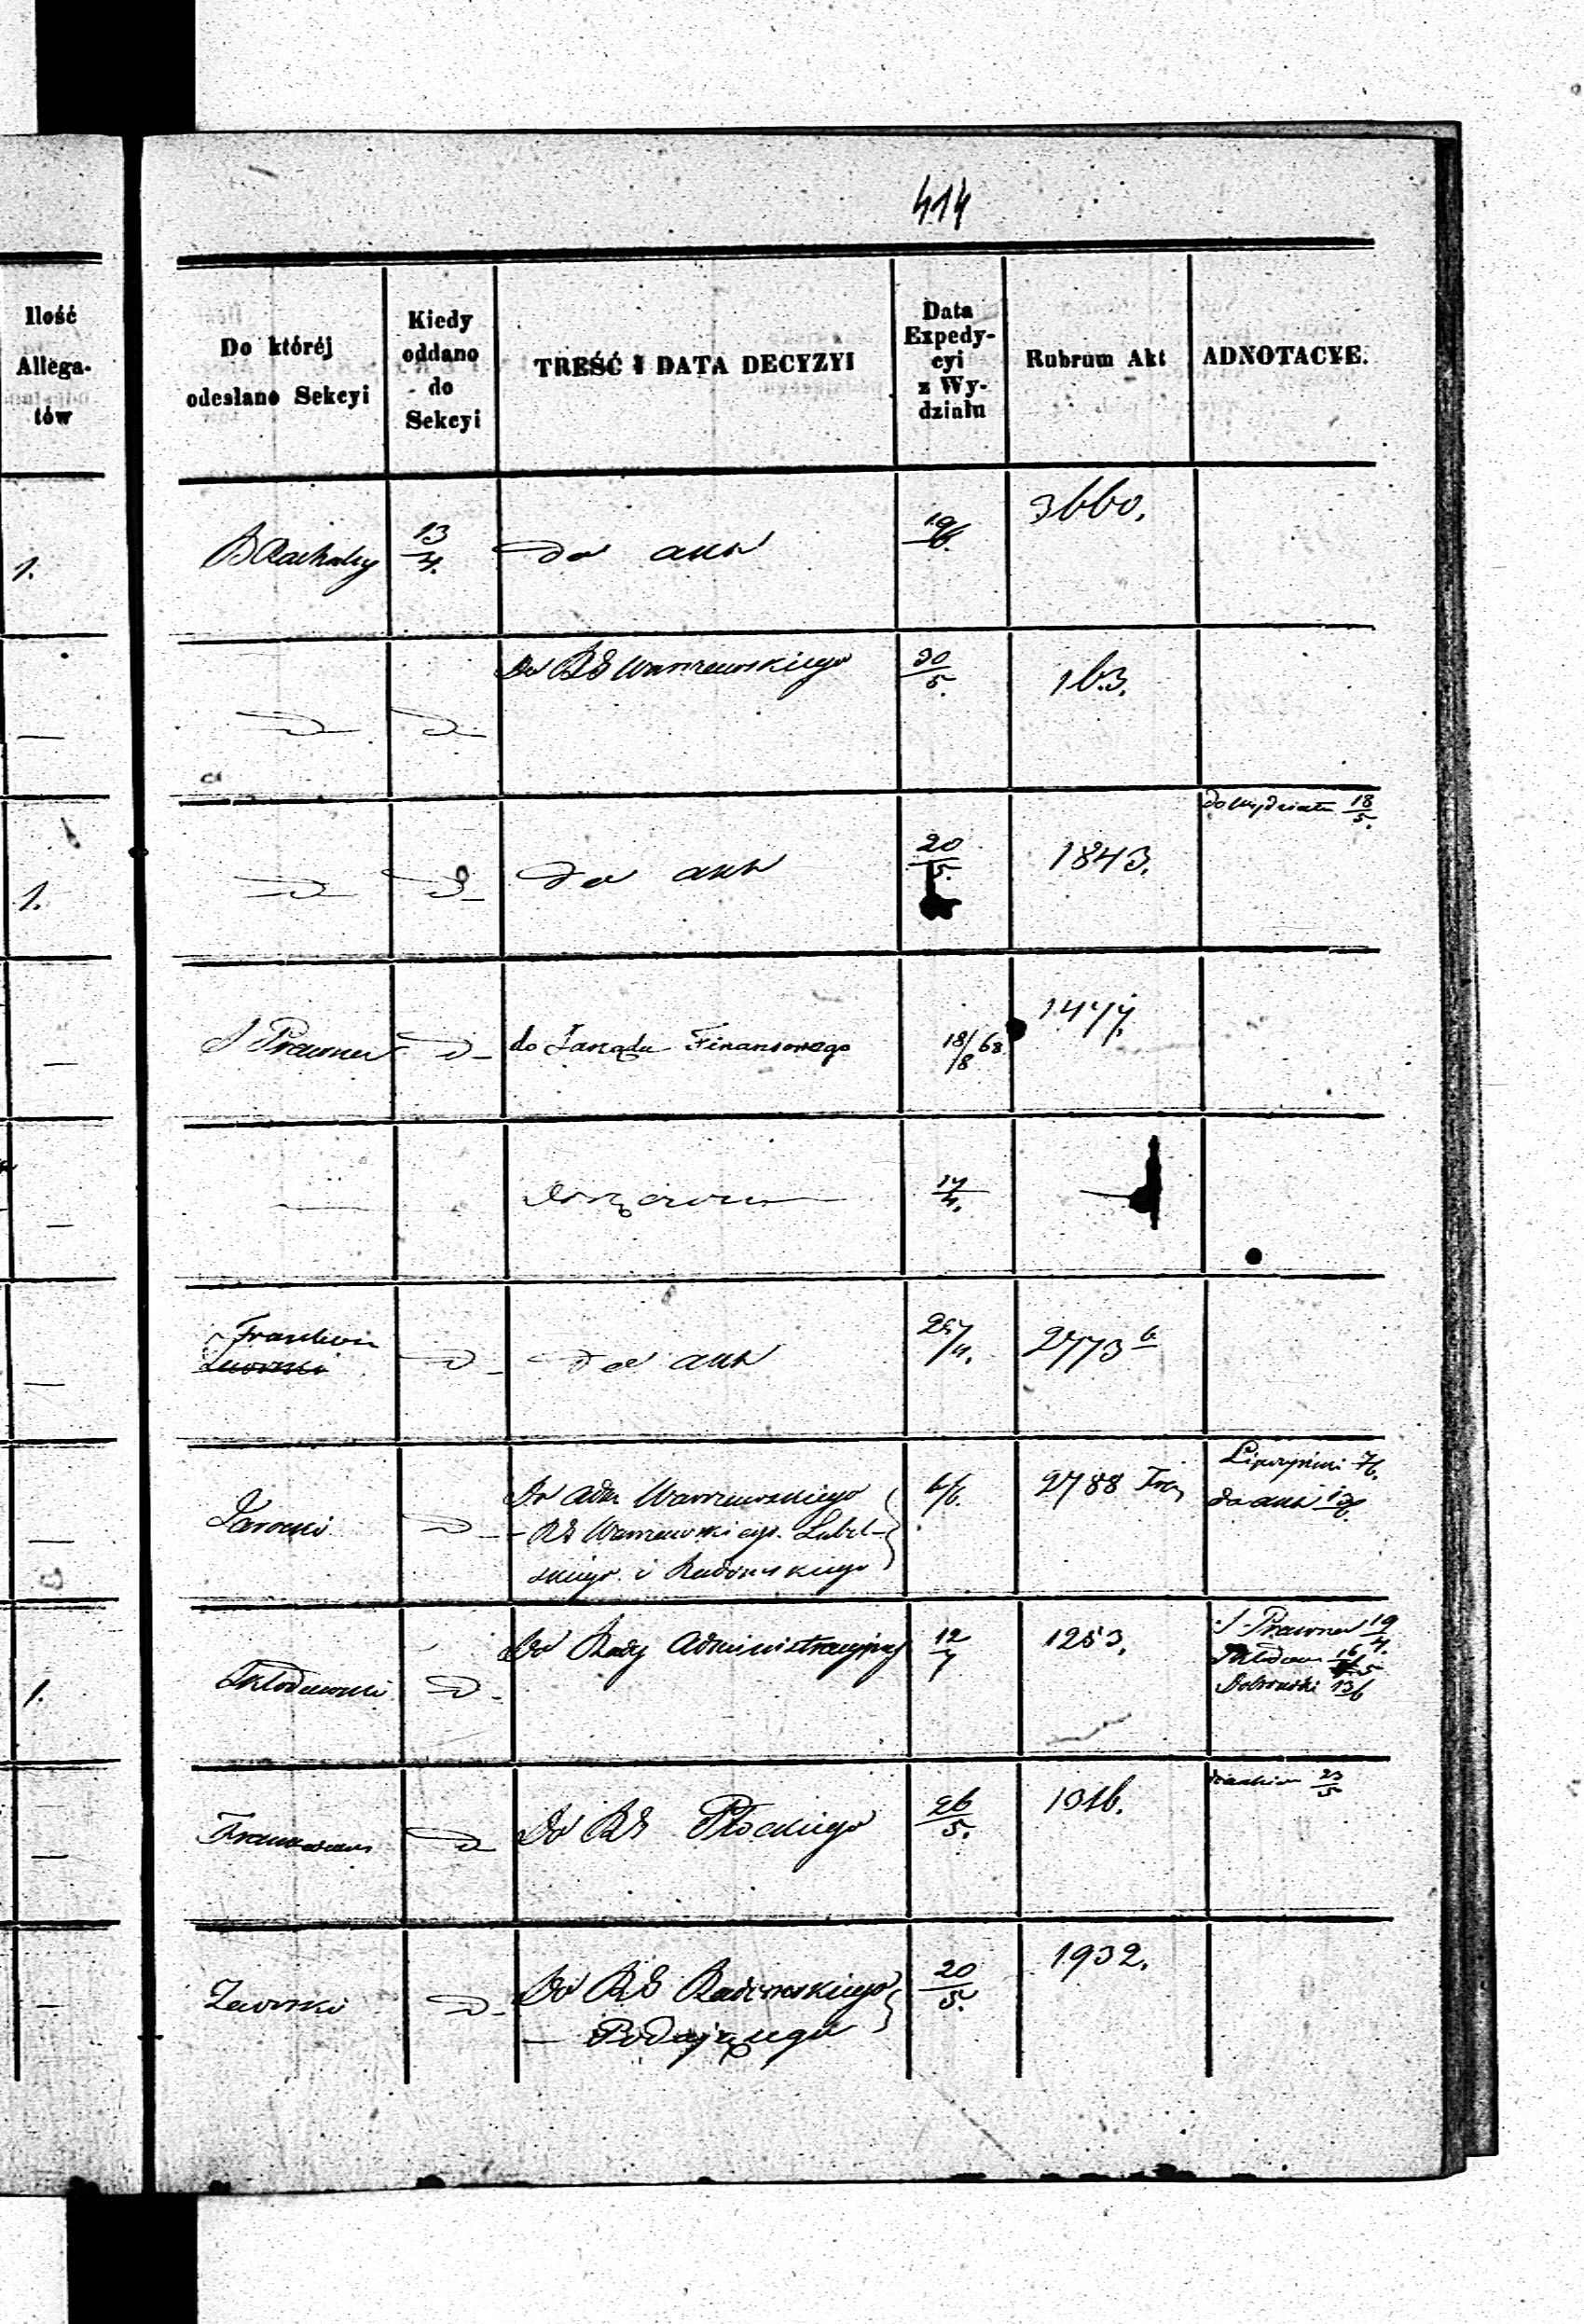 414
Ilość
Allega-
tów
Do któréj
odesłano Sekcyi
Kiedy
oddano
do
Sekcyi
TREŚĆ I DATA DECYZYI
Data
Expedy-
cyi
z Wy-
działu
Rubrum Akt
ADNOTACYE.
1.
13/4.
do akt
3660.
—
Do RG Warszawskiego
30/5.
163.
1.
do akt
20/5.
1843.
do Wydziału 18/5.
—
S Prawna
do Zarządu Finansowego
18/8 68
1477.
—
17/4.
—
—
do akt
2773 b
—
Do Adm Warszawskiego
- RG Warszawskiego Lubel-
skiego i Radomskiego
6/6.
2788
do akt
1.
Skłodowski
Do Rady Administracyjnej
12/7
1253.
S Prawna 19/4.
Dobrowolski 13/6
—
Do RG Płockiego
26/5.
1316.
23/5
—
Zaorski
Do RG Radomskiego
— Podającego
20/5.
1932.